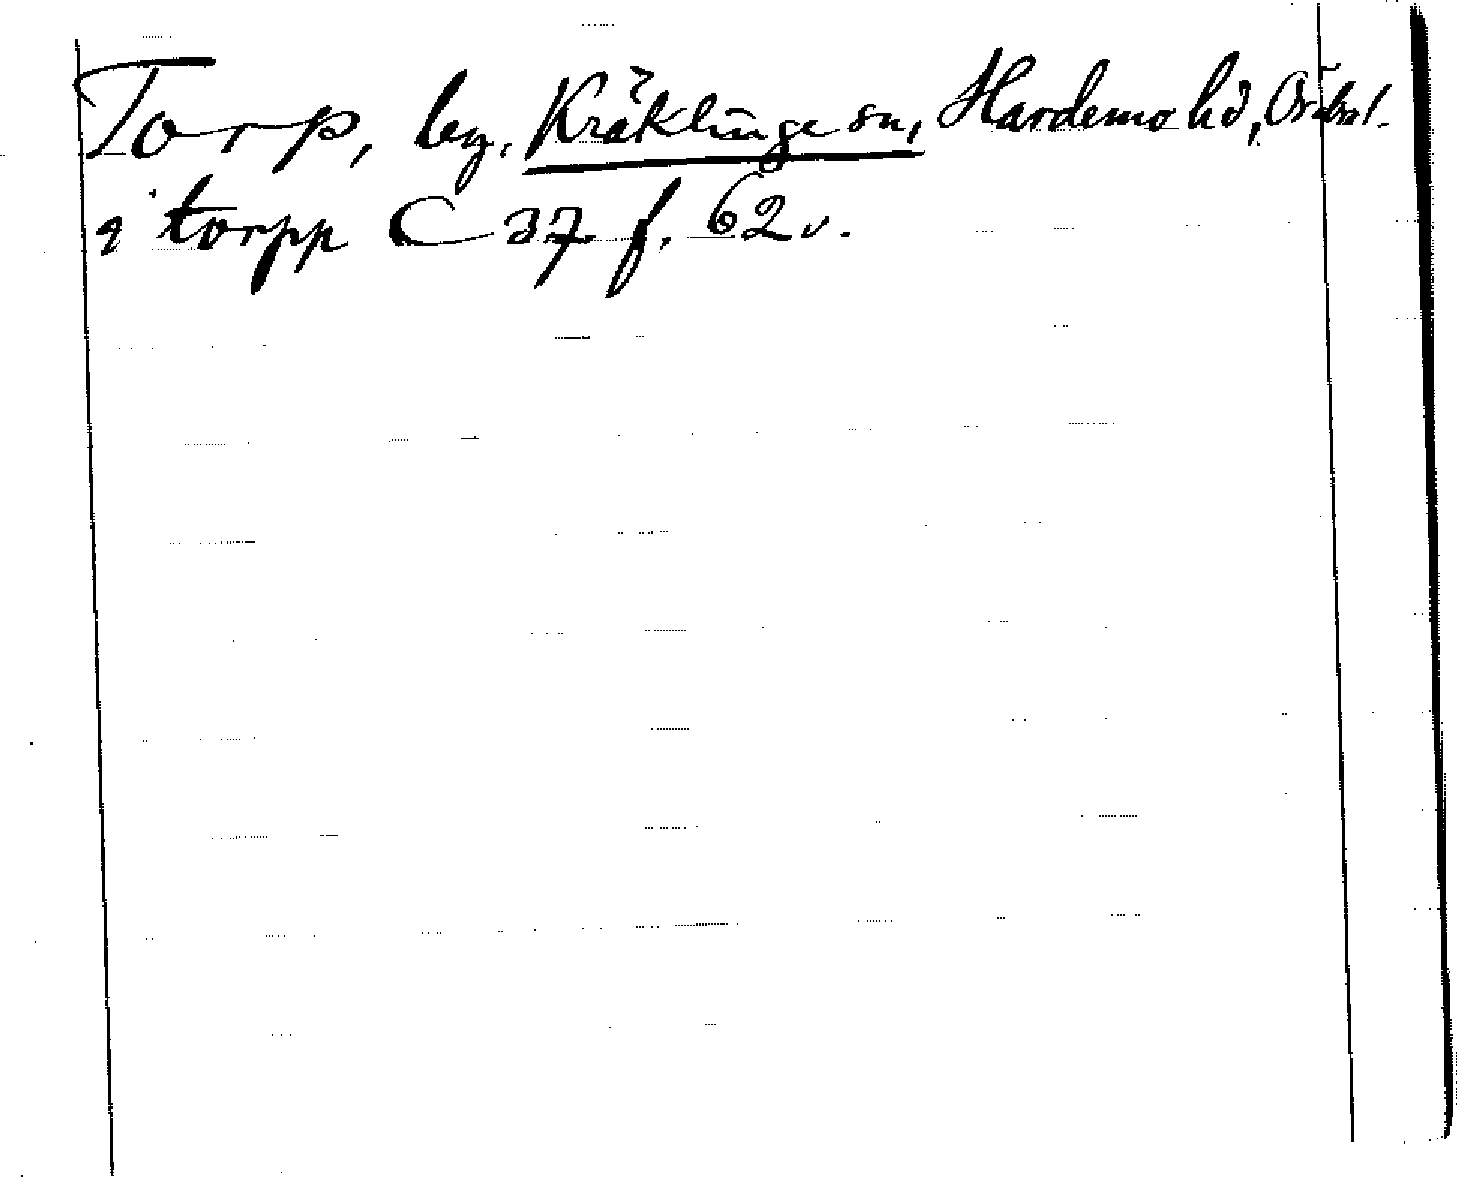 Torp, by, Kräklinge sn, Hardemo hd,
i torpp C 37 f. 62 v.